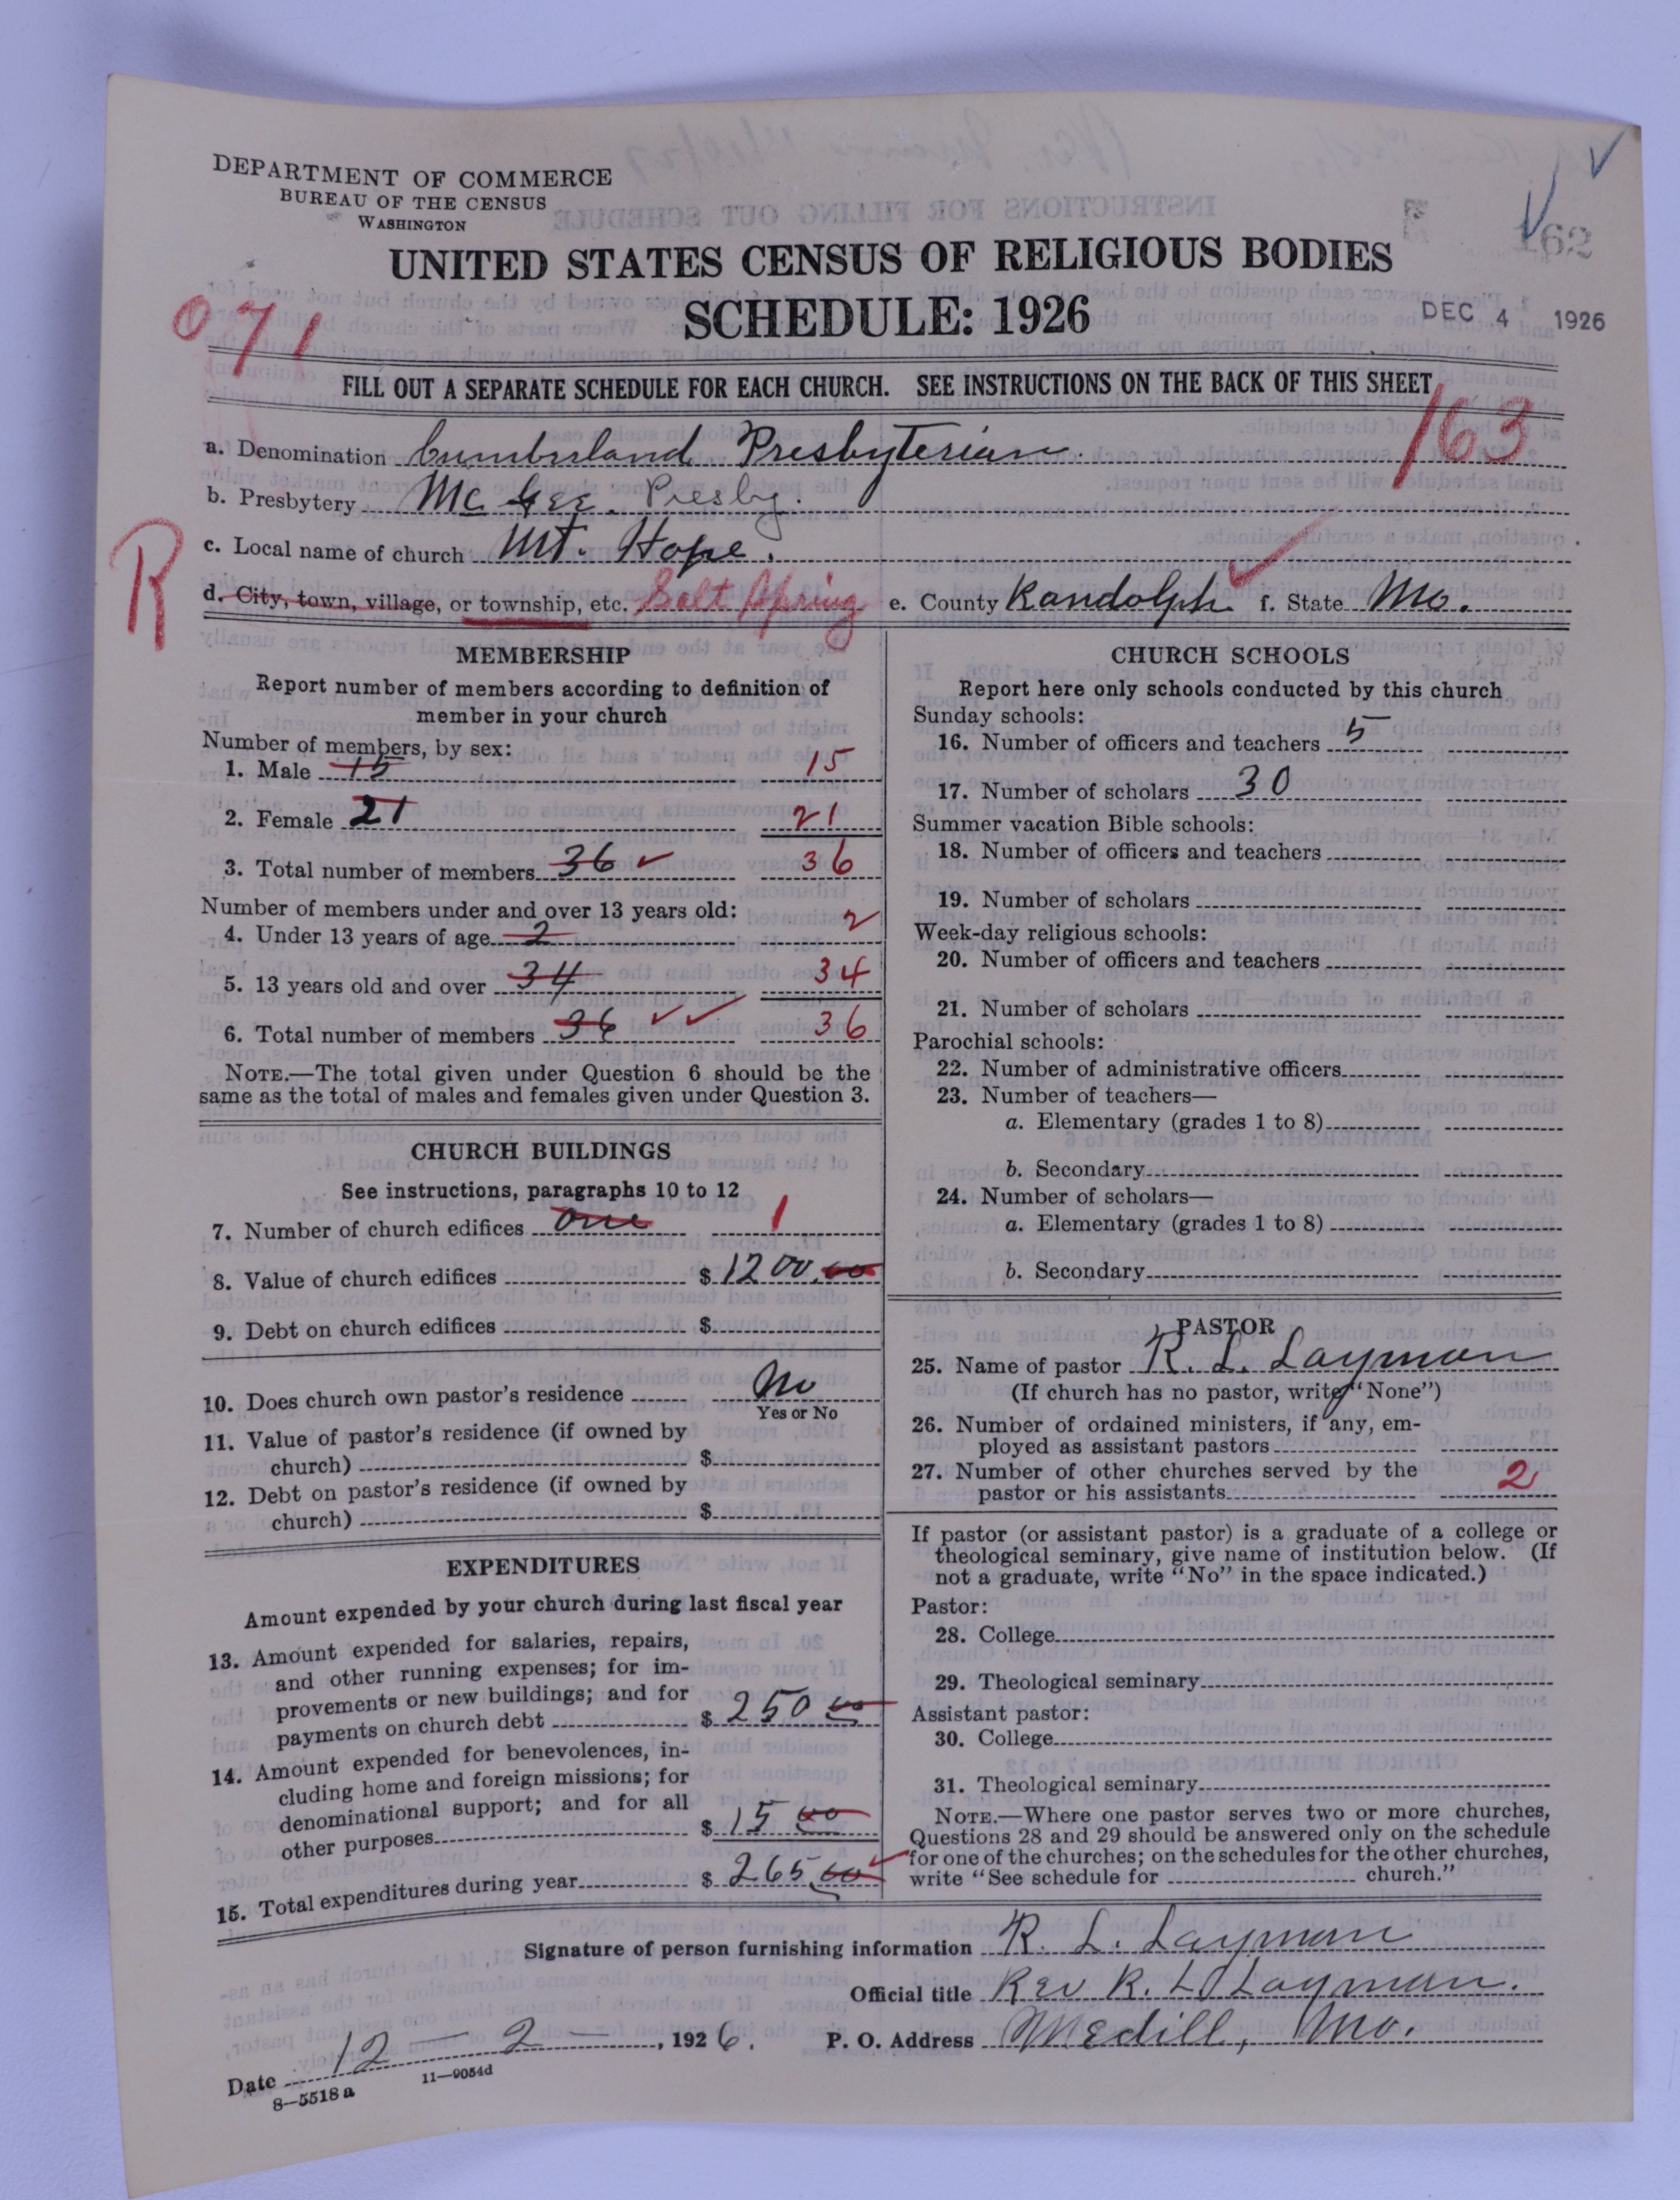 DEPARTMENT OF COMMERCE
BUREAU OF THE CENSUS
WASHINGTON
UNITED STATES CENSUS OF RELIGIOUS BODIES
SCHEDULE: 1926
DEC 4 1926
162
071
FILL OUT A SEPARATE SCHEDULE FOR EACH CHURCH. SEE INSTRUCTIONS ON THE BACK OF THIS SHEET
163
a. Denomination Cumberland Presbyterian.
b. Presbytery Mc Gee. Presby.
c. Local name of church Mt. Hope.
R
d. City, town, village, or township, etc. Salt Spring e. County Randolph f. State Mo.
MEMBERSHIP
Report number of members according to definition of
member in your church
Number of members, by sex:
1. Male 15 15
2. Female 21 21
3. Total number of members 36 36
Number of members under and over 13 years old:
4. Under 13 years of age 2 2
5. 13 years old and over 34 34
6. Total number of members 36 36
NOTE.—The total given under Question 6 should be the
same as the total of males and females given under Question 3.
CHURCH BUILDINGS
See instructions, paragraphs 10 to 12
7. Number of church edifices one 1
8. Value of church edifices $ 1200.00
9. Debt on church edifices $
10. Does church own pastor's residence No
Yes or No
11. Value of pastor's residence (if owned by
church) $
12. Debt on pastor's residence (if owned by
church) $
EXPENDITURES
Amount expended by your church during last fiscal year
13. Amount expended for salaries, repairs,
and other running expenses; for im-
provements or new buildings; and for
payments on church debt $ 250 00
14. Amount expended for benevolences, in-
cluding home and foreign missions; for
denominational support; and for all
other purposes $ 15 00
15. Total expenditures during year $ 265.00
CHURCH SCHOOLS
Report here only schools conducted by this church
Sunday schools:
16. Number of officers and teachers 5
17. Number of scholars 30
Summer vacation Bible schools:
18. Number of officers and teachers
19. Number of scholars
Week-day religious schools:
20. Number of officers and teachers
21. Number of scholars
Parochial schools:
22. Number of administrative officers
23. Number of teachers—
a. Elementary (grades 1 to 8)
b. Secondary
24. Number of scholars—
a. Elementary (grades 1 to 8)
b. Secondary
PASTOR
25. Name of pastor R. L. Layman
(If church has no pastor, write "None")
26. Number of ordained ministers, if any, em-
ployed as assistant pastors
27. Number of other churches served by the
pastor or his assistants 2
If pastor (or assistant pastor) is a graduate of a college or
theological seminary, give name of institution below. (If
not a graduate, write "No" in the space indicated.)
Pastor:
28. College
29. Theological seminary
Assistant pastor:
30. College
31. Theological seminary
NOTE.—Where one pastor serves two or more churches,
Questions 28 and 29 should be answered only on the schedule
for one of the churches; on the schedules for the other churches,
write "See schedule for church."
Signature of person furnishing information R. L. Layman
Official title Rev R. L. Layman.
Date 12 - 2 -, 1926. P. O. Address Medill, Mo.
8—5518 a 11—9054d